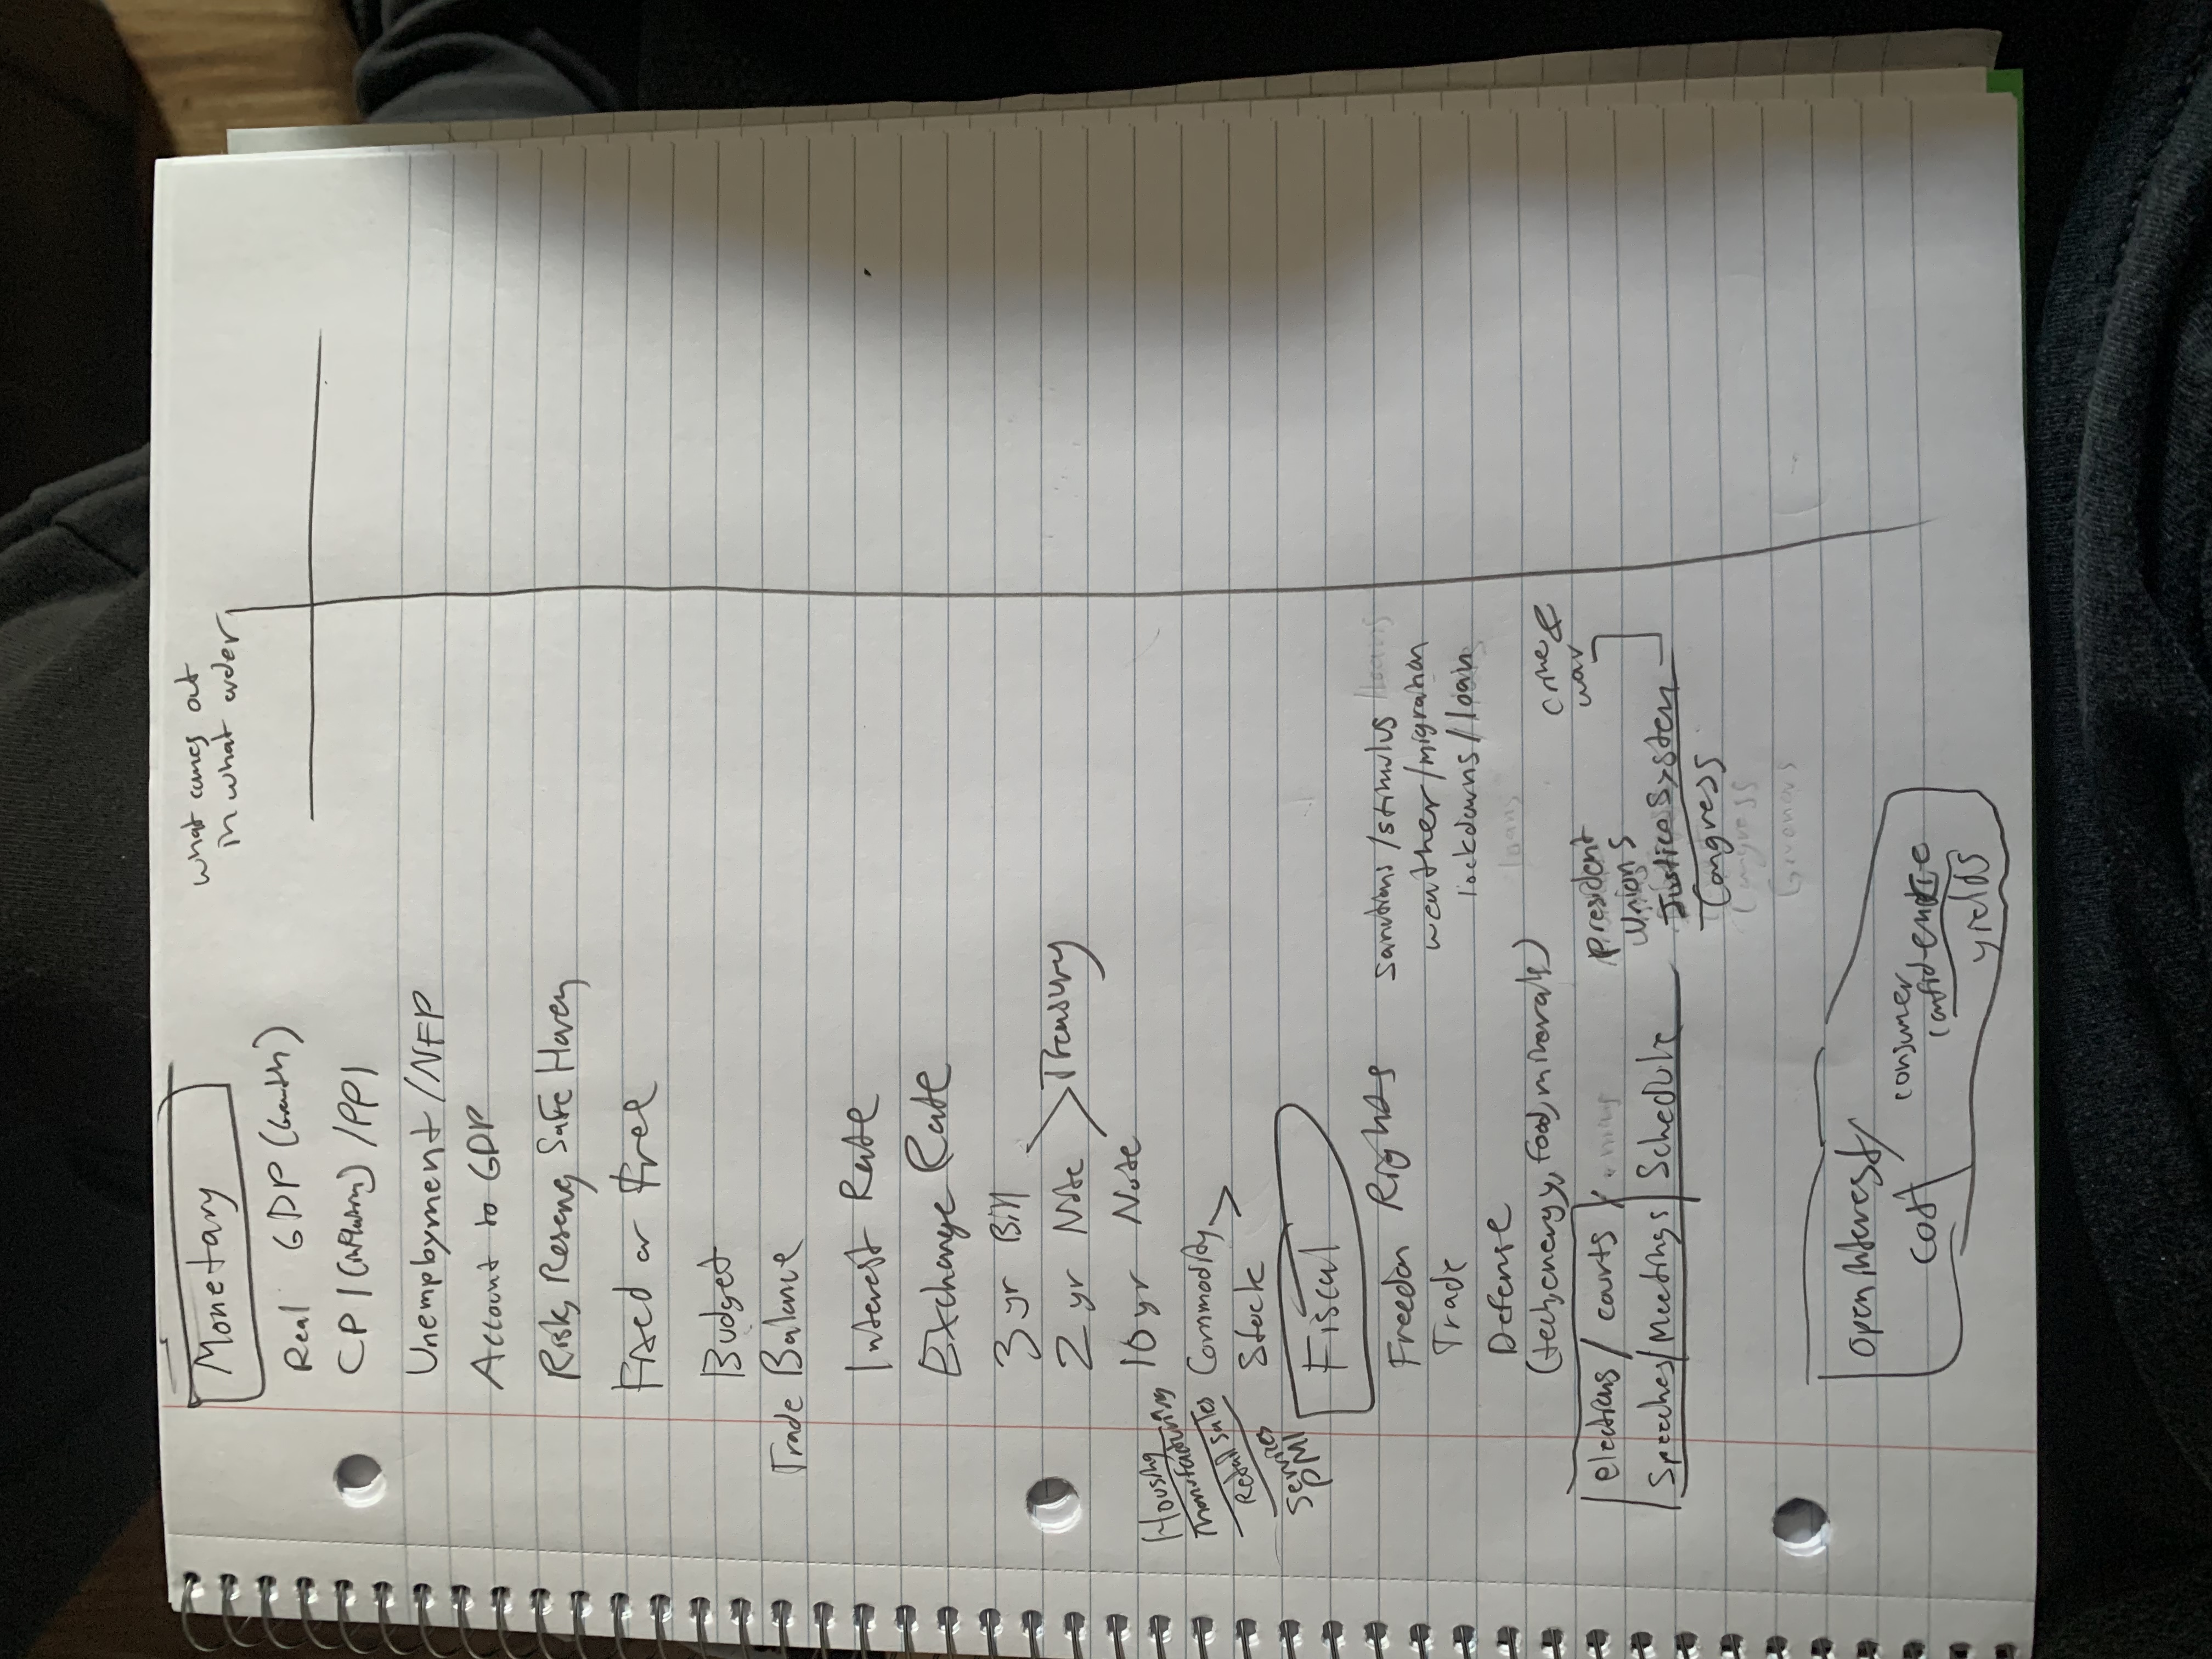 what comes out
in what order
Monetary
Real GDP (Growth)
CPI (Inflation) / PPI
Unemployment / NFP
Account to GDP
Risk, Reserve, Safe Haven
Fixed or Free
Budget
Trade Balance
Interest Rate
Exchange Rate
3 yr Bill
2 yr Note > Treasury
10 yr Note
Housing
Manufacturing
Retail Sales
Services
PMI
Commodity >
Stock
Fiscal
Freedom Rights
Trade
sanctions / stimulus / loans
weather / migration
lockdowns / loan
loans
Defense
(tech, energy, food, minerals)
crime &
war
elections / courts
Speeches / Meetings | Schedule
president
Unions
Justice System
Congress
Congress
open interest /
cot
consumer
confidence
yields